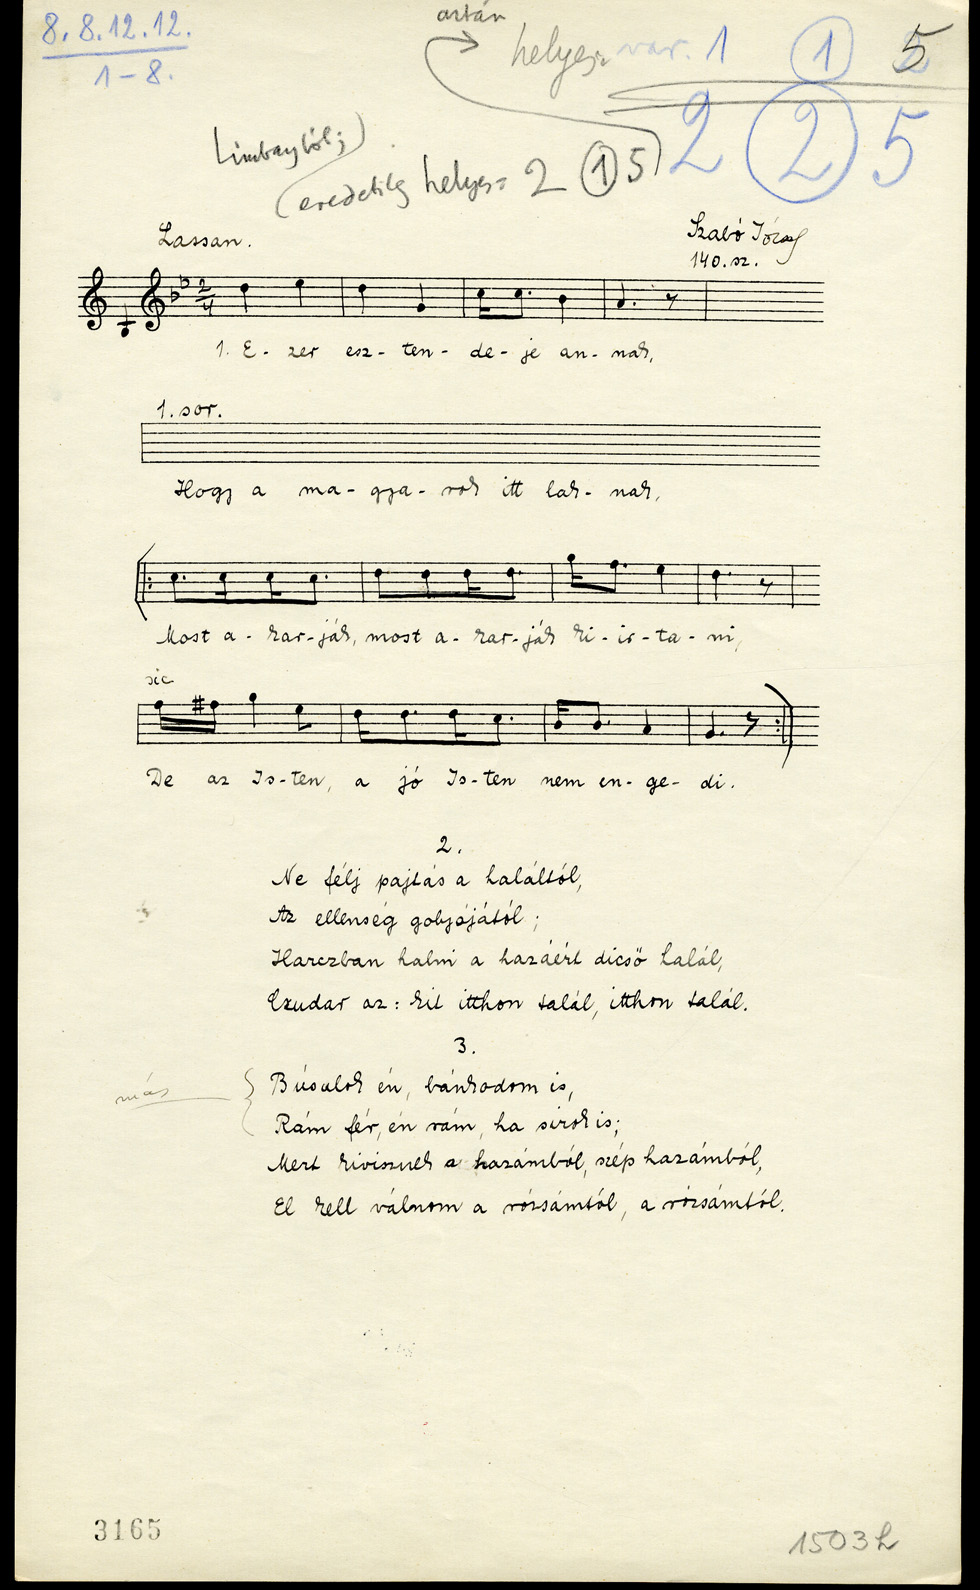 8. 8. 12. 12.
1 - 8.
aztán
helyes: var. 1 1 5
2 2 5
eredetileg helyes: 2 1 5
Lassan.
Szabó József
140. sz.
1. E - zer esz - ten - de - je an - nak,
1. sor.
Hogy a ma - gya - rok itt lak - nak,
Most a - kar - ják, most a - kar - ják ki - ir - ta - ni,
sic
De az Is - ten, a jó Is - ten nem en - ge - di.
2.
Ne félj pajtás a haláltól,
Az ellenség golyójától;
Harczban halni a hazáért dicső halál,
Czudar az: kit itthon talál, itthon talál.
3.
más
Búsulok én, bánkodom is,
Rám fér, én rám, ha sirok is;
Mert kivisznek a hazámból, szép hazámból,
El kell válnom a rózsámtól, a rózsámtól.
3165
1503 h